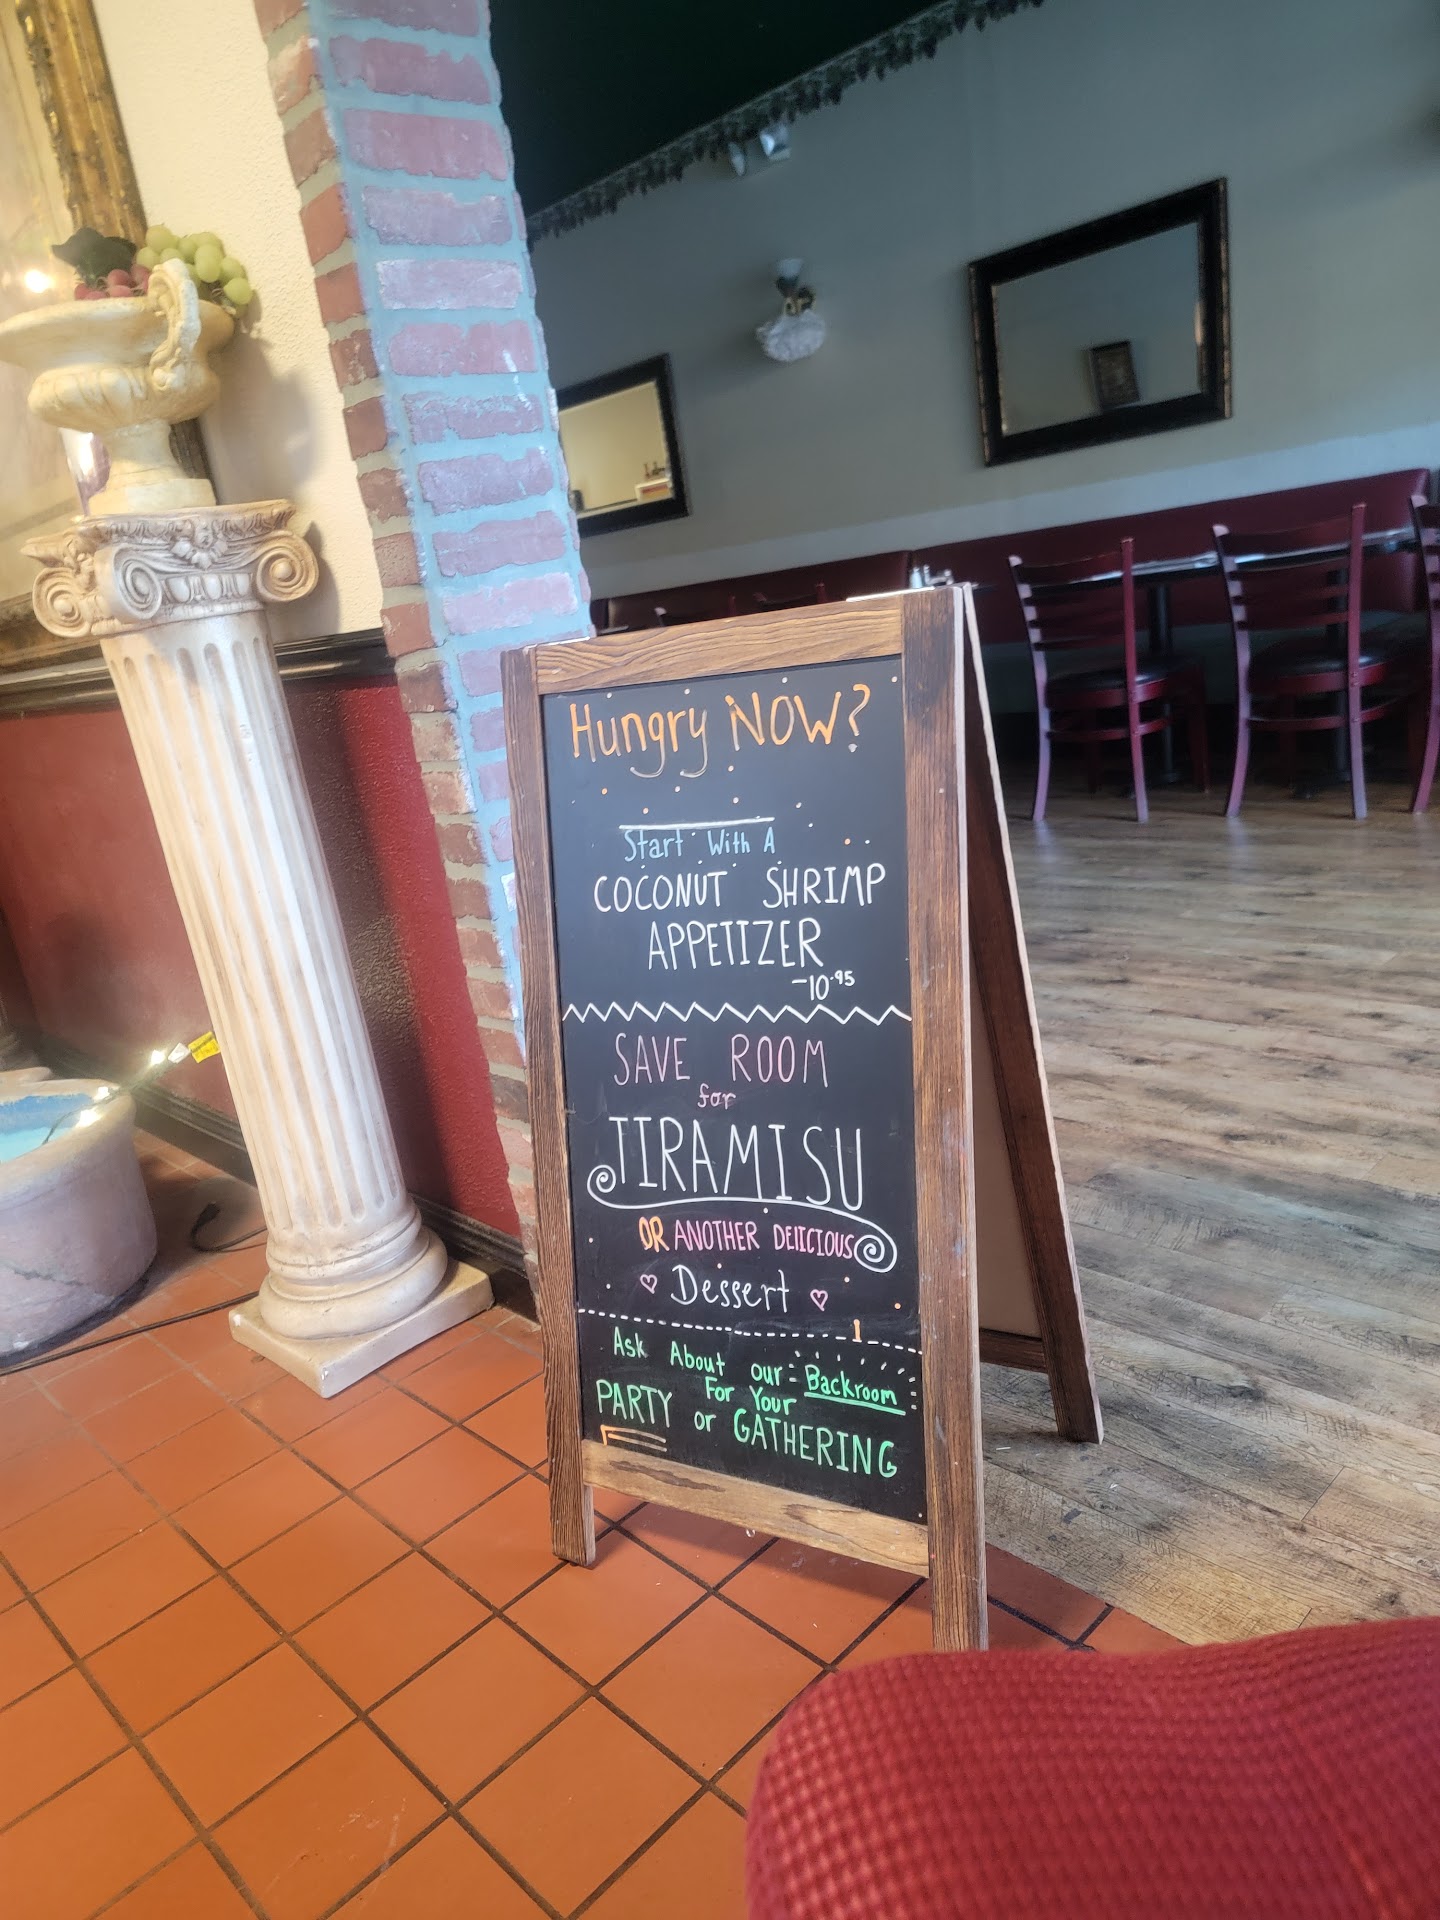 Hungry NOW?
Start With A
COCONUT SHRIMP
APPETIZER
-10.95
SAVE ROOM
for
TIRAMISU
OR ANOTHER DELICIOUS
Dessert
Ask About our Backroom
For Your
PARTY or GATHERING